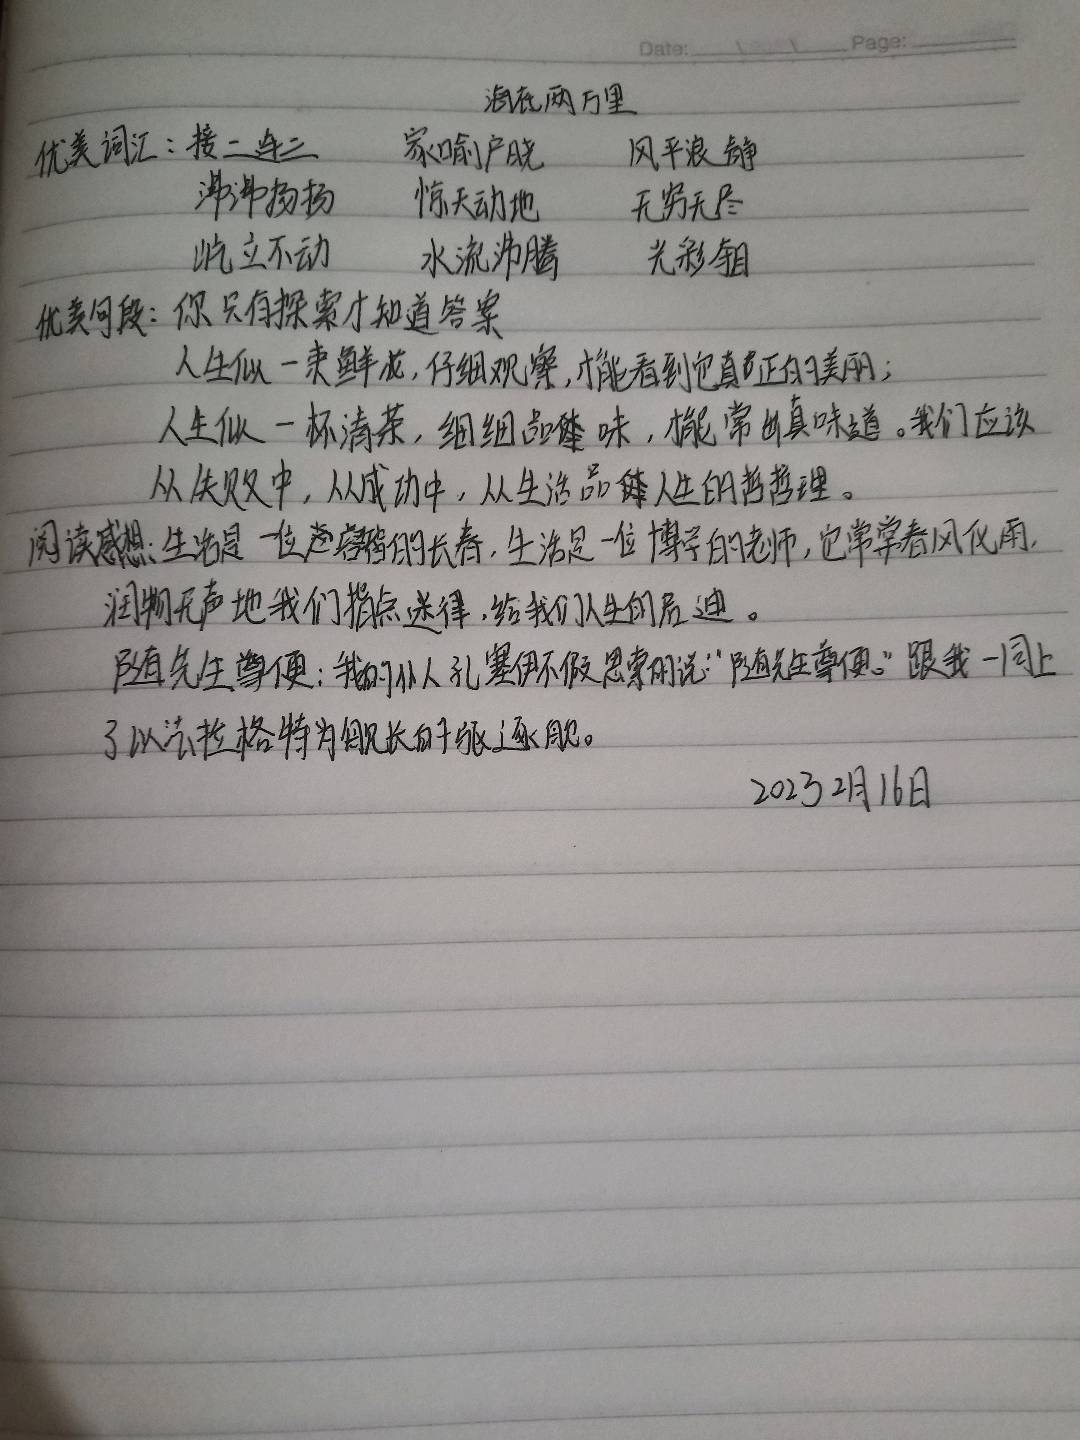 Date: Page:
海底两万里
优美词汇：接二连三 家喻户晓 风平浪静
沸沸扬扬 惊天动地 无穷无尽
屹立不动 水流沸腾 光彩
优美句段：你只有探索才知道答案
人生似一束鲜花，仔细观察，才能看到它真正的美丽；
人生似一杯清茶，细细品味，才能常出真味道。我们应该
从失败中，从成功中，从生活品人生的哲哲理。
阅读感想：生活是一位的长春，生活是一位博学的老师，它常常春风化雨，
润物无声地我们指点迷律，给我们人生的启迪。
随先生尊便：我的仆人孔塞伊不假思索的说：“随先生尊便。”跟我一同上
了以法拉格特为舰长的驱逐舰。
2023 2月16日